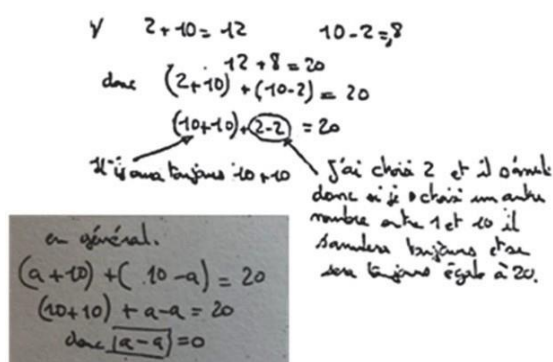 y 2+10=12 10-2=8
12+8=20
donc (2+10)+(10-2)=20
(10+10)+(2-2)=20
Il y aura toujours 10+10
J'ai choisi 2 et il s'annule
donc si je choisi un autre
nombre entre 1 et 10 il
s'annulera toujours et se
sera toujours égale à 20.
en général.
(a+10)+(10-a)=20
(10+10)+a-a=20
donc a-a=0